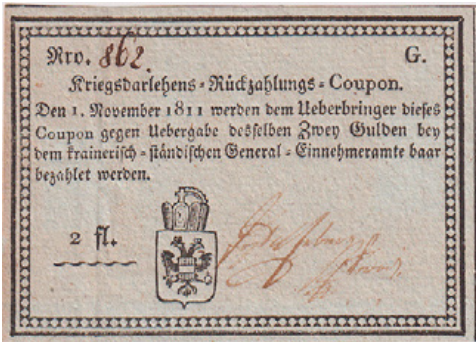 Nro. 862. G.
Kriegsdarlehens-Rückzahlungs-Coupon.
Den 1. November 1811 werden dem Ueberbringer dieses
Coupon gegen Uebergabe desselben Zwey Gulden bey
dem krainerisch-ständischen General-Einnehmeramte baar
bezahlet werden.
2 fl.